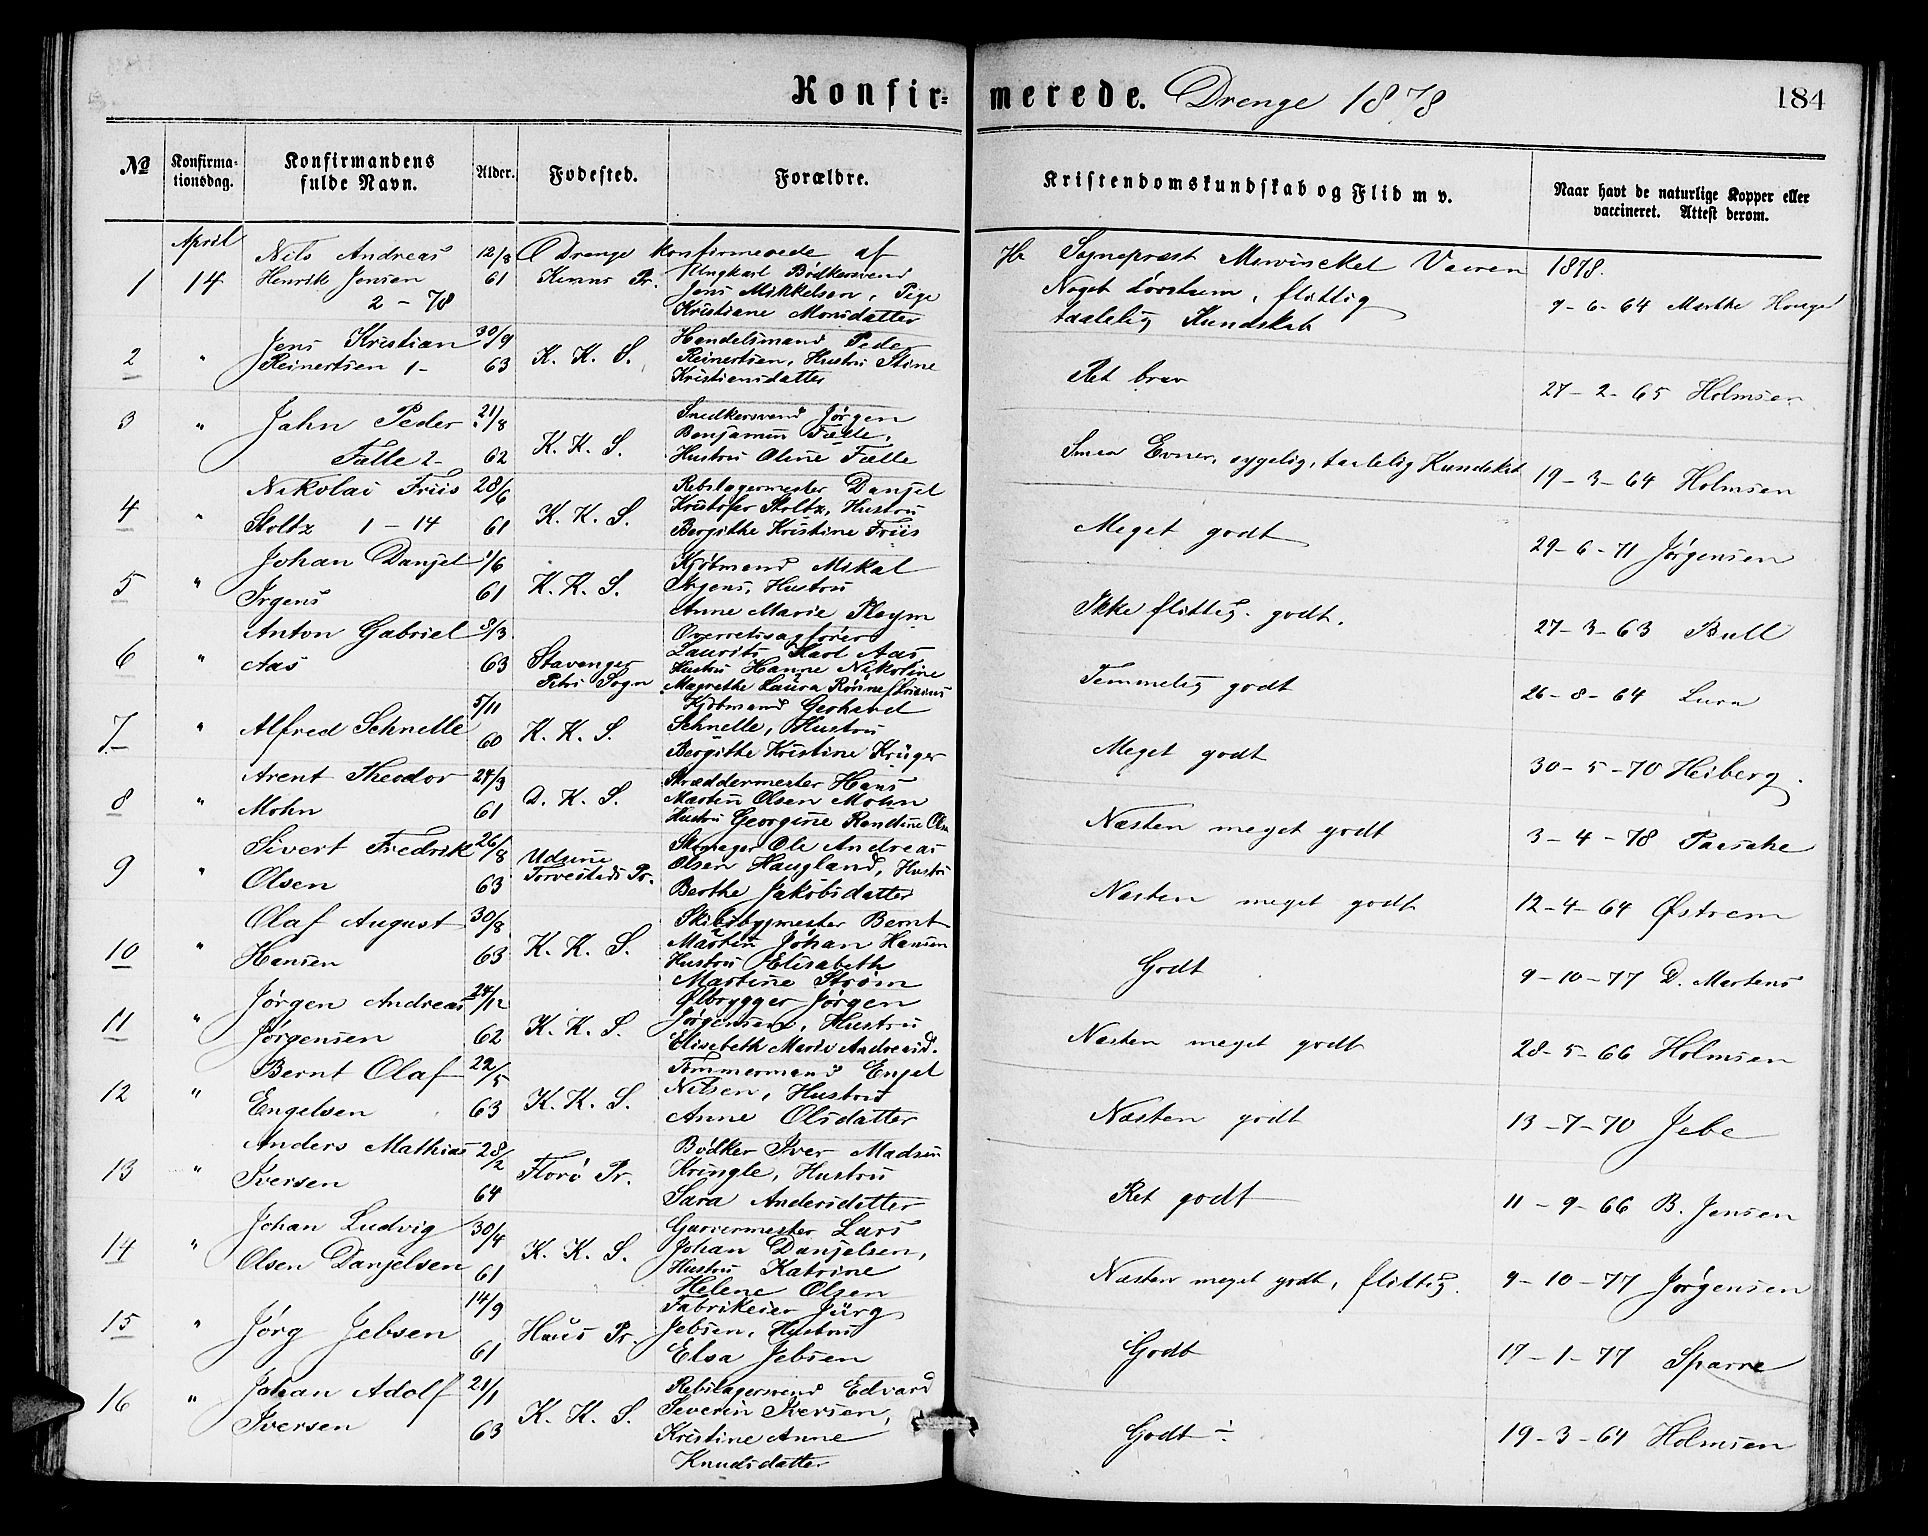 Konfirmerede. Drenge 1878
184
№ Konfirmationsdag. Konfirmandens fulde Navn. Alder. Fødested. Forældre. Kristendomskundskab og Flid m v. Naar havt de naturlige Kopper eller vaccineret. Attest derom.
April
Drenge konfirmerede af Hr Sognepræst Mervinckel Vaaren 1878.
1 14 Nils Andreas 12/8
Henrik Jensen 61 Kinns Pr. Ungkarl Bødkersvend
2 – 78 Jens Mikkelsen, Pige
Kristiane Monsdatter
Noget tungnem, flittig
taalelig Kundskab
9-6-64
2 " Jens Kristian 30/9
Reinertsen 1- 63 K. K. S. Handelsmand Peder
Reinertsen, Hustru Stine
Kristiensdatter
Ret brav
27-2-65 Holmsen
3 " Jahn Peder 21/8
Fælle 2- 62 K. K. S. Snedkersvend Jørgen
Benjamin Fælle,
Hustru Oline Fælle
Smaa Evner, sygelig, taalelig Kundskab
19-3-64 Holmsen
4 " Nikolai Friis 28/6
Stoltz 1 – 14 61 K. K. S. Rebslagermester Danjel
Kristofer Stoltz, Hustru
Bergithe Kristine Friis
Meget godt
29-6-71 Jørgensen
5 " Johan Danjel 1/6
Irgens 61 K. K. S. Kjøbmand Mikal
Irgens, Hustru
Anne Marie Pleym
Ikke flittig. godt.
27-3-63 Bull
6 " Anton Gabriel 8/3
Aas 63 Stavanger
Petri Sogn
Overretssagfører
Laurits Karl Aas
Hustru Hanne Nikoline
Magrethe Laura Rønne
Temmelig godt
26-8-64 Lura
7 " Alfred Schnelle 5/11
60 K. K. S. Kjøbmand Gerhard
Schnelle, Hustru
Bergithe Kristine Krüger
Meget godt
30-5-70 Heiberg.
8 " Arent Theodor 24/3
Mohn 61 D. K. S. Skræddermester Hans
Martin Olsen Mohn
Hustru Georgine Randine Olsen
Næsten meget godt
3-4-78 Paasche
9 " Sivert Fredrik 26/8
Olsen 63 Udsine
Torvestads Pr. Skomager Ole Andreas
Olsen Haugland, Hustru
Berthe Jakobsdatter
Næsten meget godt
12-4-64 Østrem
10 " Olaf August 30/8
Hansen 63 K. K. S. Skibsbygmester Bernt
Martin Johan Hansen
Hustru Elisabeth
Martine Strøm
Godt
9-10-77 D. Martens
11 " Jørgen Andreas 24/12
Jørgensen 62 K. K. S. Ølbrygger Jørgen
Jørgensen, Hustru
Elisebeth Marie Andreasd.
Næsten meget godt
28-5-66 Holmsen
12 " Bernt Olaf 22/5
Engelsen 63 K. K. S. Tømmermand Engel
Nilsen, Hustru
Anne Olsdatter
Næsten godt
13-7-70 Jebe
13 " Anders Mathias 28/2
Iversen 64 Florø Pr. Bødker Iver Madsen
Kringle, Hustru
Sara Andersdatter
Ret godt
11-9-66 B. Jensen
14 " Johan Ludvig 30/4
Olsen Danjelsen 61 K. K. S. Garvermester Lars
Johan Danjelsen,
Hustru Katrine
Helene Olsen
Næsten meget godt, flittig.
9-10-77 Jørgensen
15 " Jørg Jebsen 14/9
61 Haus Pr. Fabrikeier Jürg
Jebsen, Hustru
Elsa Jebsen
Godt
17-1-77 Sparre
16 " Johan Adolf 21/1
Iversen 63 K. K. S. Rebslagersvend Edvard
Severin Iversen,
Kristine Anne
Knudsdatter
Godt ÷
19-3-64 Holmsen